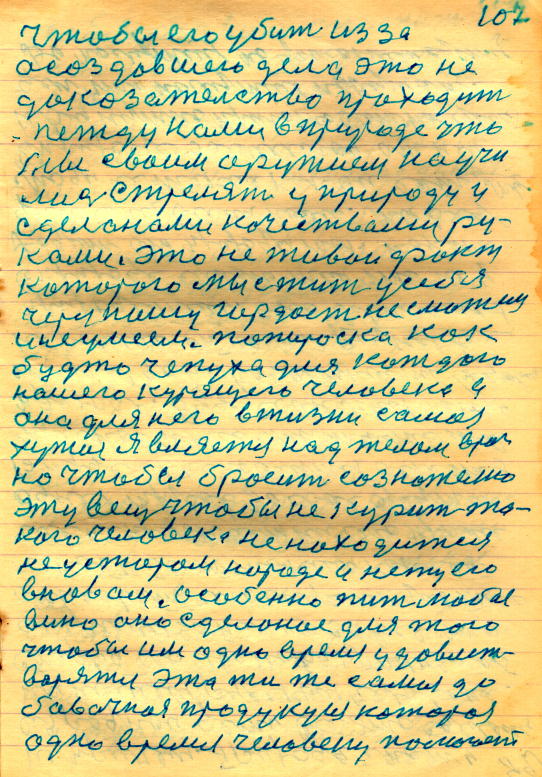 107
чтобы его убит из за
осоздовшего дела, это не
доказателство проходит
петду нами в природе что
мы своим орутием научи
лис стрелят у природу и
сделонами кочествами ру-
ками. Это не тивой факт
которого мы стит у себя
через нашу гордост не смотим
и не умеем. попироска как
будто чепуха для котдого
нашего курящего человека а
она для него в тизни самоя
хутшая является над телом враг
но чтобы бросит сознателно
эту вещ чтобы не курит та-
кого человека не находится
не у стором народе и нет у его
вновом. особенно пит любой
вино оно сделоное для того
чтобы им одно время удовлет-
варятся Эта ти же самая до
бавочная продукция которая
одно время человеку помогает